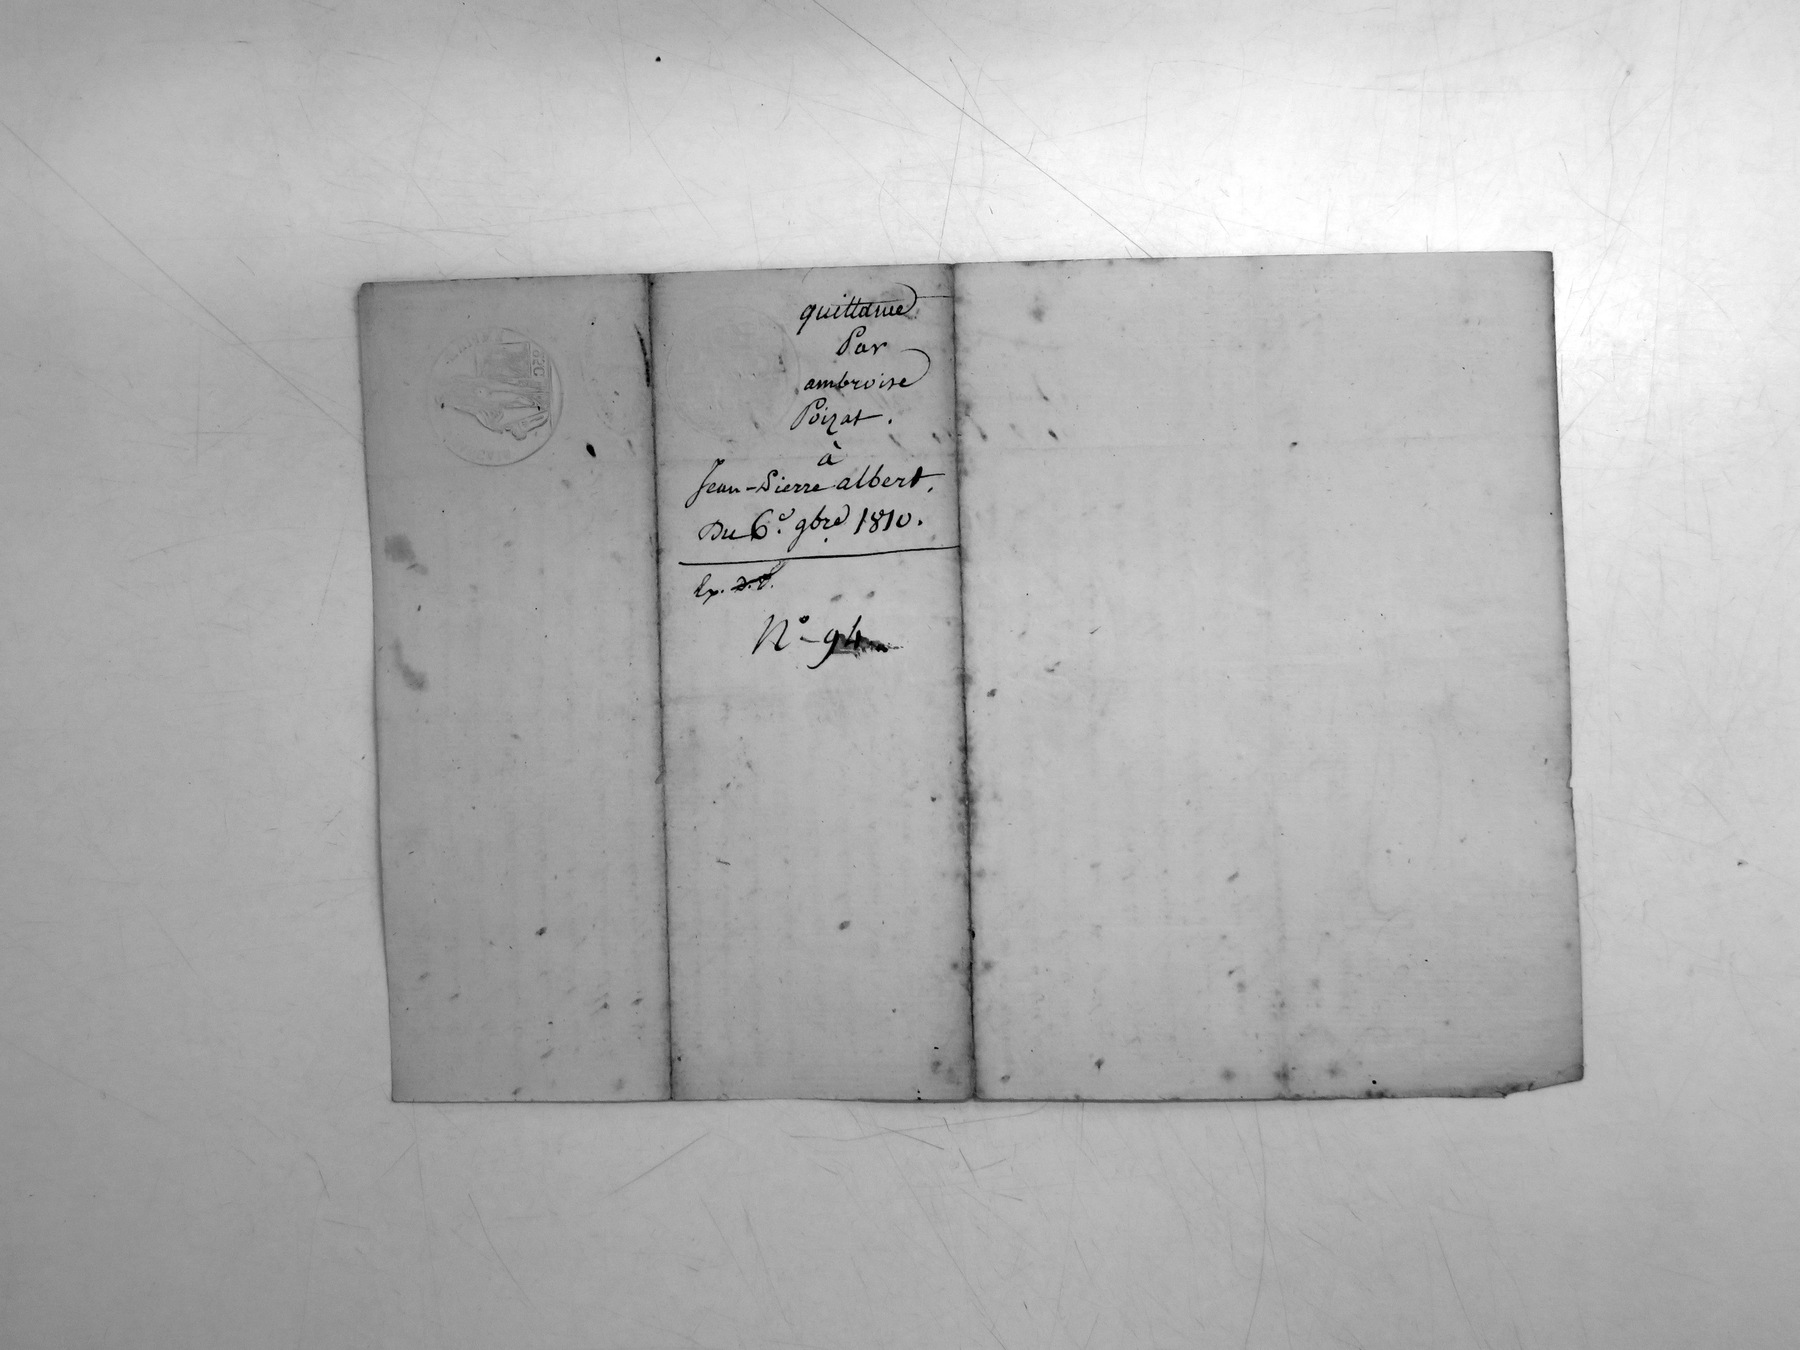 quittance
Par
ambroise
Poizat.
à
Jean-Pierre albert.
Du 6.e 9bre 1810.
Ex.
N.o - 94